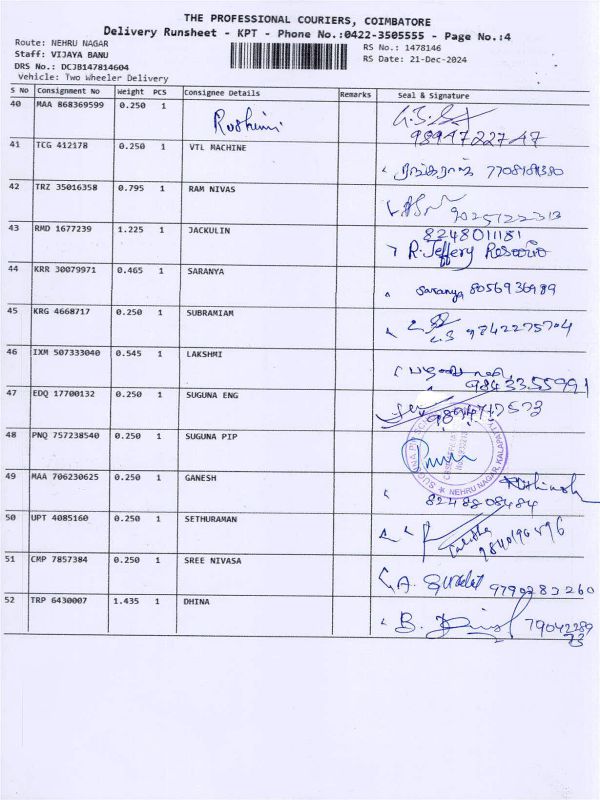 THE PROFESSIONAL COURIERS, COIMBATORE
Delivery Runsheet - KPT - Phone No.:0422-3505555 - Page No.:4
Route: NEHRU NAGAR RS No.: 1478146
Staff: VIJAYA BANU RS Date: 21-Dec-2024
DRS No.: DCJB147814604
Vehicle: Two Wheeler Delivery
S No Consignment No Weight PCS Consignee Details Remarks Seal & Signature
40 MAA 868369599 0.250 1 9894722747
41 TCG 412178 0.250 1 VTL MACHINE
42 TRZ 35016358 0.795 1 RAM NIVAS
43 RMD 1677239 1.225 1 JACKULIN 8248011181
R. Jeffery Rosario
44 KRR 30079971 0.465 1 SARANYA Saranya 8056936989
45 KRG 4668717 0.250 1 SUBRAMIAM 9842275704
46 IXM 507333040 0.545 1 LAKSHMI 9843355991
47 EDQ 17700132 0.250 1 SUGUNA ENG
48 PNQ 757238540 0.250 1 SUGUNA PIP
NEHRU NAGAR, KALAPATTI
49 MAA 706230625 0.250 1 GANESH 8248808484
50 UPT 4085160 0.250 1 SETHURAMAN
51 CMP 7857384 0.250 1 SREE NIVASA A. 9790283260
52 TRP 6430007 1.435 1 DHINA B. 7904228973